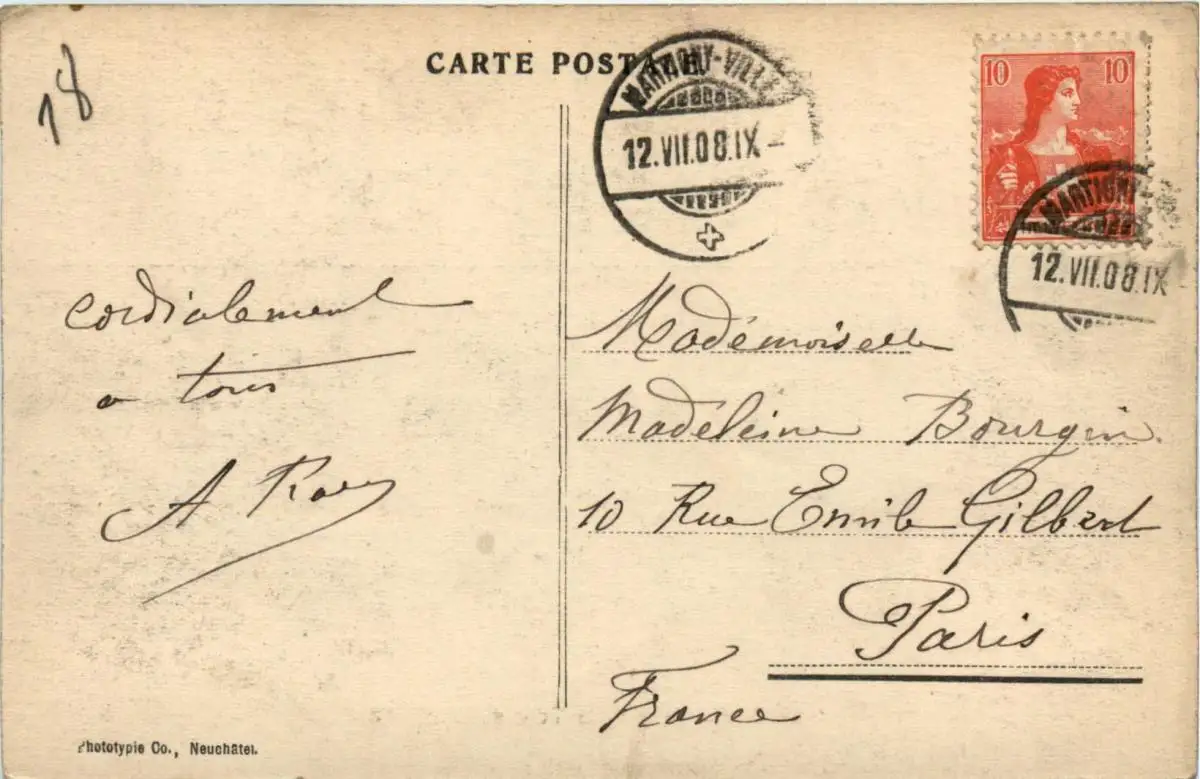 CARTE POSTALE
18
MARTIGNY-VILLE
12.VII.08.IX-
10 10
MARTIGNY-
12.VII.08.IX-
cordialement
a tous
A
Mademoiselle
Madeleine Bourgin
10 Rue Emile Gilbert
Paris
France
Phototypie Co., Neuchâtel.